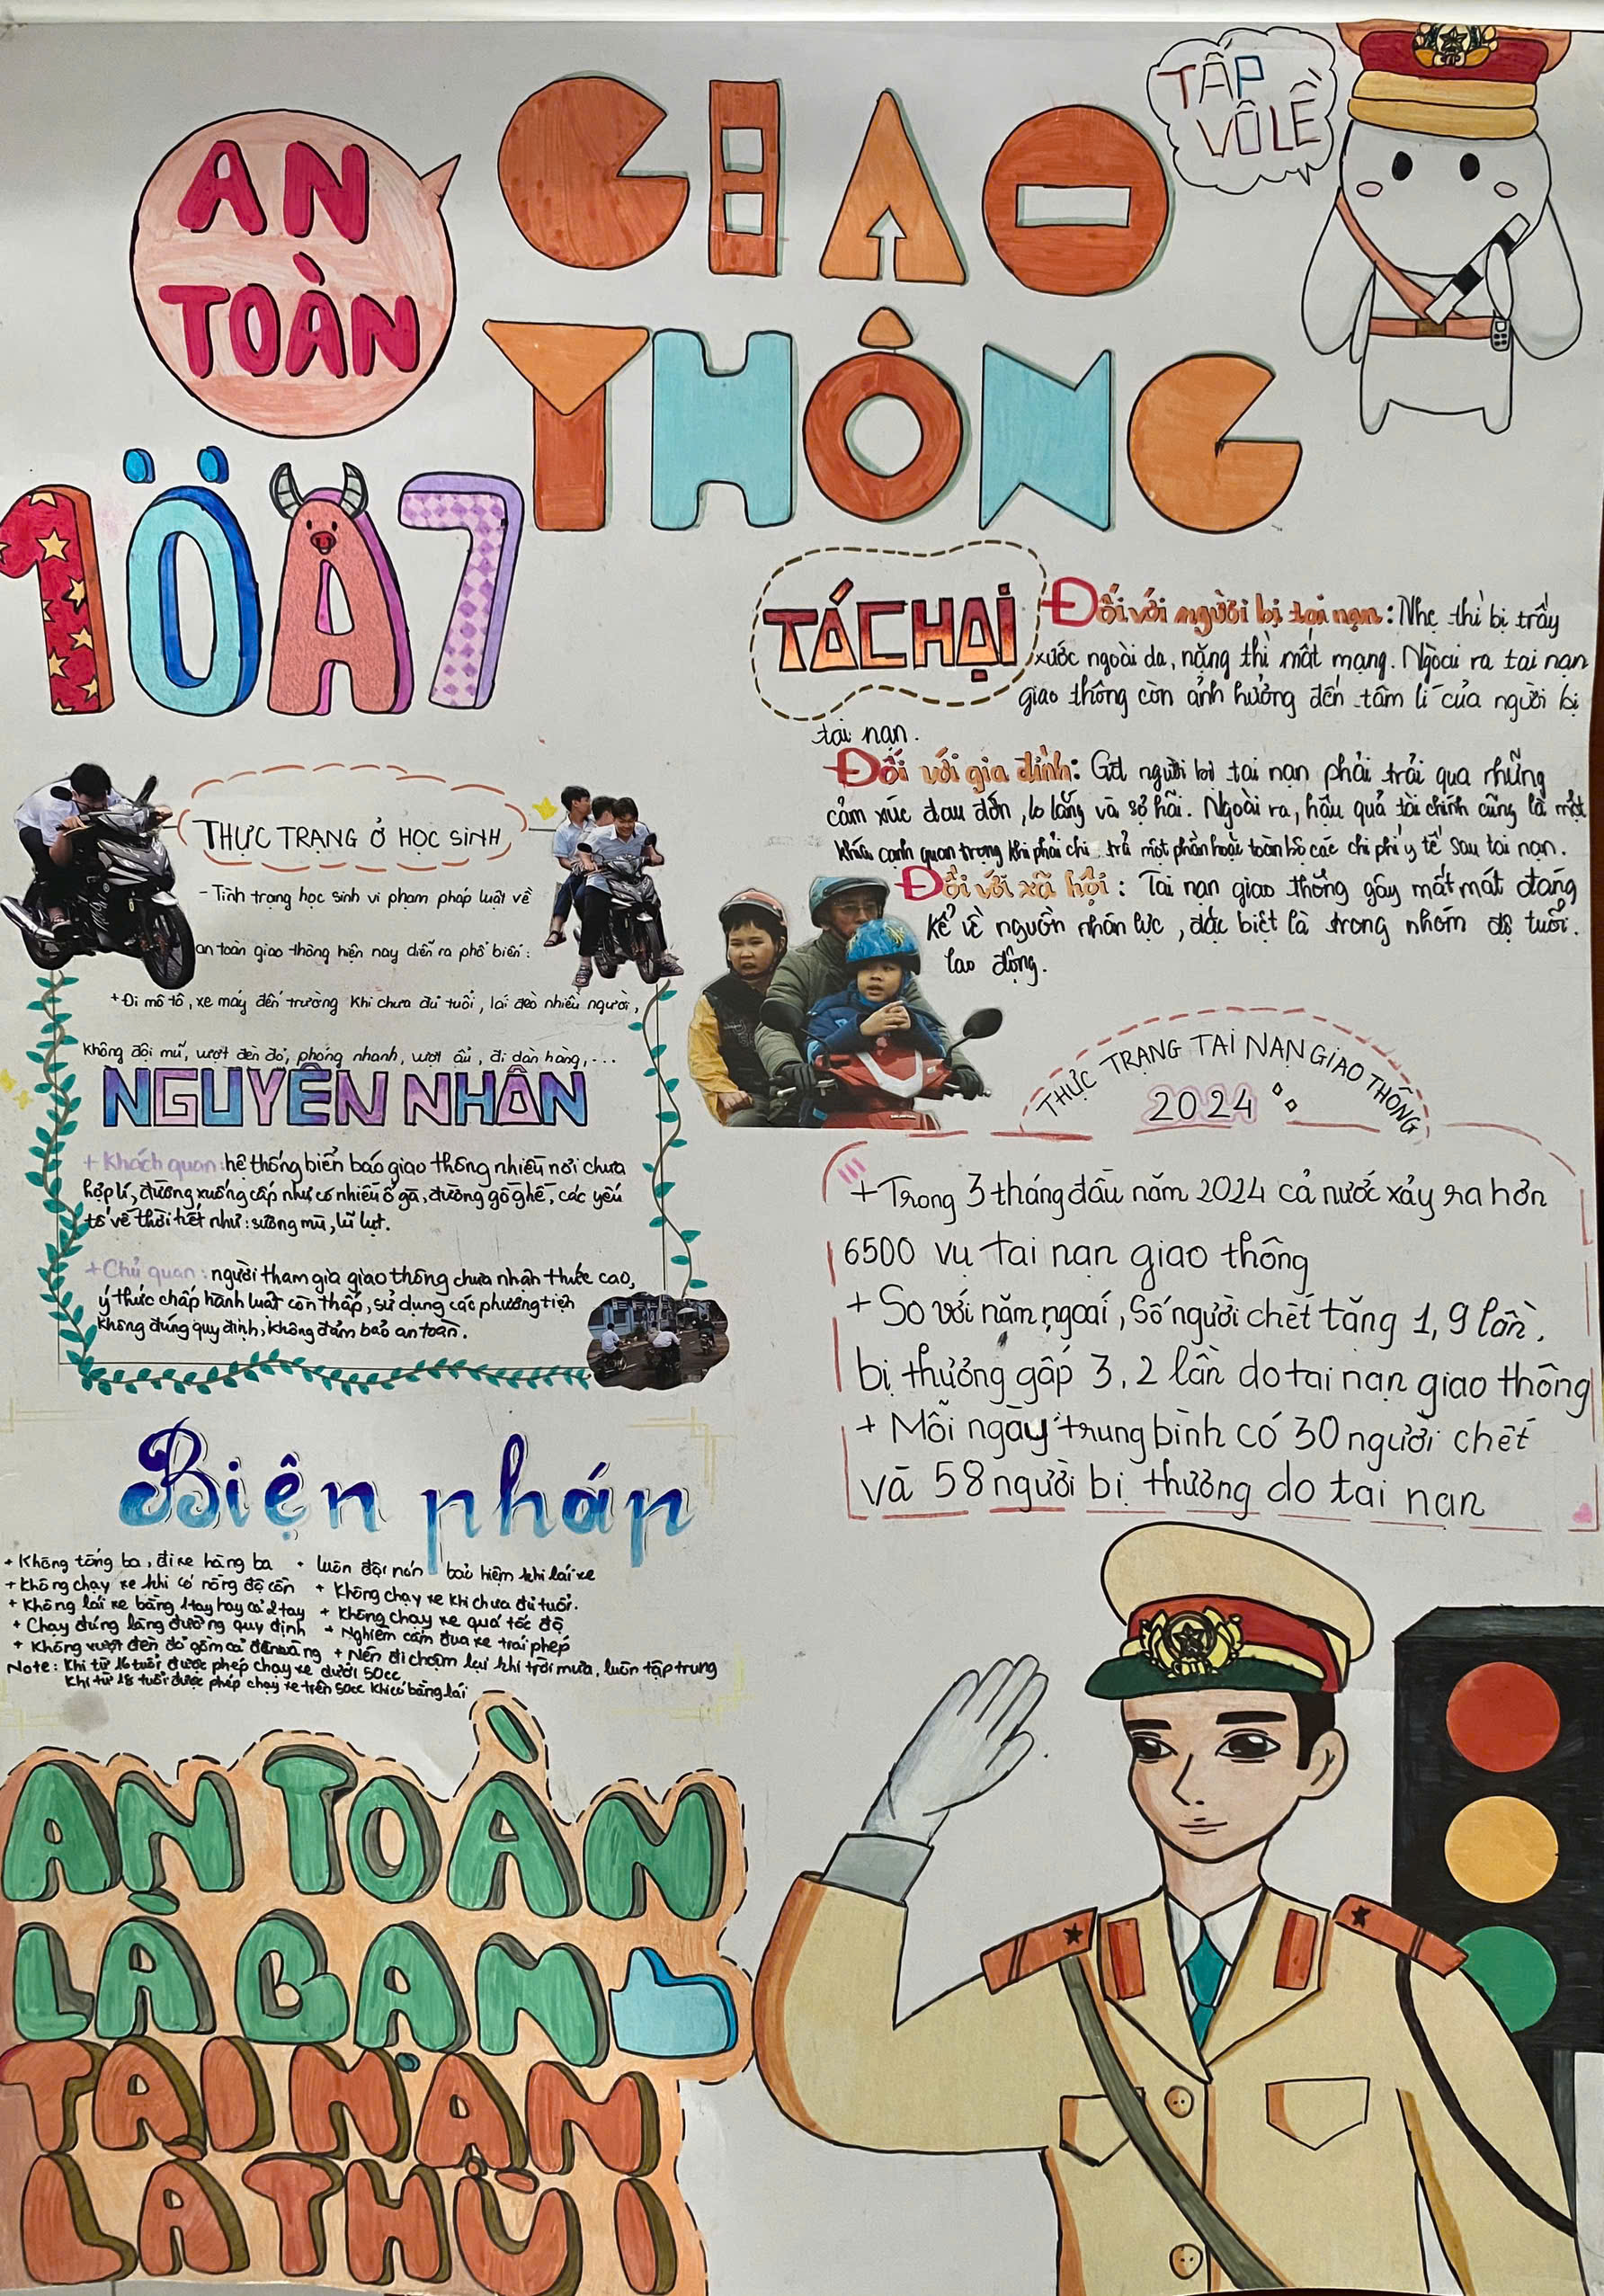 AN
TOÀN
GIAO
THÔNG
TẤP
VÔ LỀ
10A7
TÁC HẠI
Đối với người bị tai nạn: Nhẹ thì bị trầy
xước ngoài da, nặng thì mất mạng. Ngoài ra tai nạn
giao thông còn ảnh hưởng đến tâm lí của người bị
tai nạn.
Đối với gia đình: Gđ người bị tai nạn phải trải qua những
cảm xúc đau đớn, lo lắng và sợ hãi. Ngoài ra, hậu quả tài chính cũng là một
khía cạnh quan trọng khi phải chi trả một phần hoặc toàn bộ các chi phí y tế sau tai nạn.
Đối với xã hội: Tai nạn giao thông gây mất mát đáng
kể về nguồn nhân lực, đặc biệt là trong nhóm độ tuổi.
lao động.
THỰC TRẠNG Ở HỌC SINH
- Tình trạng học sinh vi phạm pháp luật về
an toàn giao thông hiện nay diễn ra phổ biến:
+Đi mô tô, xe máy đến trường khi chưa đủ tuổi, lái đèo nhiều người,
không đội mũ, vượt đèn đỏ, phóng nhanh, vượt ẩu, đi dàn hàng,...
NGUYÊN NHÂN
+ Khách quan: hệ thống biển báo giao thông nhiều nơi chưa
hợp lí, đường xuống cấp như có nhiều ổ gà, đường gồ ghề, các yếu
tố về thời tiết như: sương mù, lũ lụt.
+ Chủ quan: người tham gia giao thông chưa nhận thức cao,
ý thức chấp hành luật còn thấp, sử dụng các phương tiện
không đúng quy định, không đảm bảo an toàn.
THỰC TRẠNG TAI NẠN GIAO THÔNG
2024
+ Trong 3 tháng đầu năm 2024 cả nước xảy ra hơn
6500 vụ tai nạn giao thông
+ So với năm ngoái, số người chết tăng 1,9 lần,
bị thương gấp 3,2 lần do tai nạn giao thông
+ Mỗi ngày trung bình có 30 người chết
và 58 người bị thương do tai nạn
Biện pháp
+ Không tống ba, đi xe hàng ba
+ Không chạy xe khi có nồng độ cồn
+ Không lái xe bằng 1 tay hay cả 2 tay
+ Chạy đúng làng đường quy định
+ Không vượt đèn đỏ gồm cả đèn vàng
• luôn đội nón bảo hiệm khi lái xe
+ Không chạy xe khi chưa đủ tuổi.
+ Không chạy xe quá tốc độ
+ Nghiêm cấm đua xe trái phép
+ Nên đi chậm lại khi trời mưa, luôn tập trung
Note: Khi từ 16 tuổi được phép chạy xe dưới 50cc
Khi từ 18 tuổi được phép chạy xe trên 50cc khi có bằng lái
AN TOÀN
LÀ BẠN
TAI NẠN
LÀ THÙI